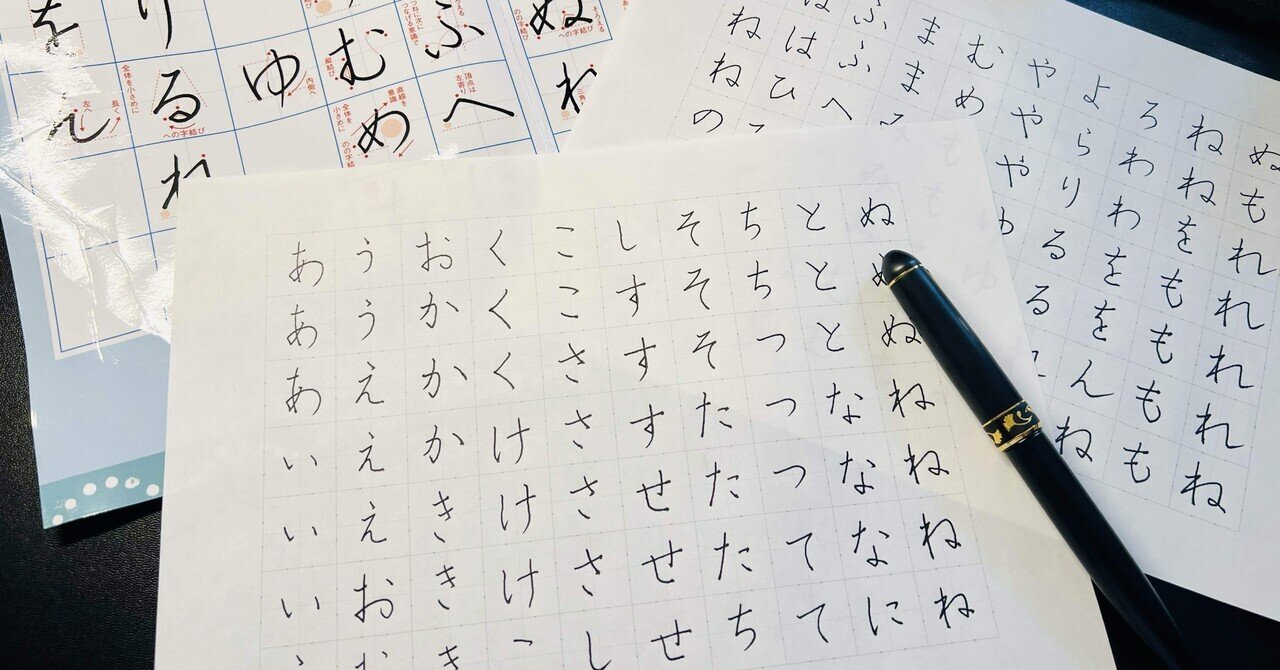 を
ん
左へ
り
る
全体を小さめに
への字結び
れ
ゆ
内側へ
む
め
直線を意識
全体を小さめに
ふ
へ
頂点は左寄り
ぬ
への字結び
ああああいいい
ううええええおお
おかかかききき
くくくけけけ
こここさささし
しすすすせせせ
そそそたたたち
ちちつつつてて
とととなななに
ぬぬぬねねねね
ねねの
はひ
ふふへ
まま
むめ
ややや
よらりるる
ろわわををんね
ねねをもももも
ぬもれれれれね